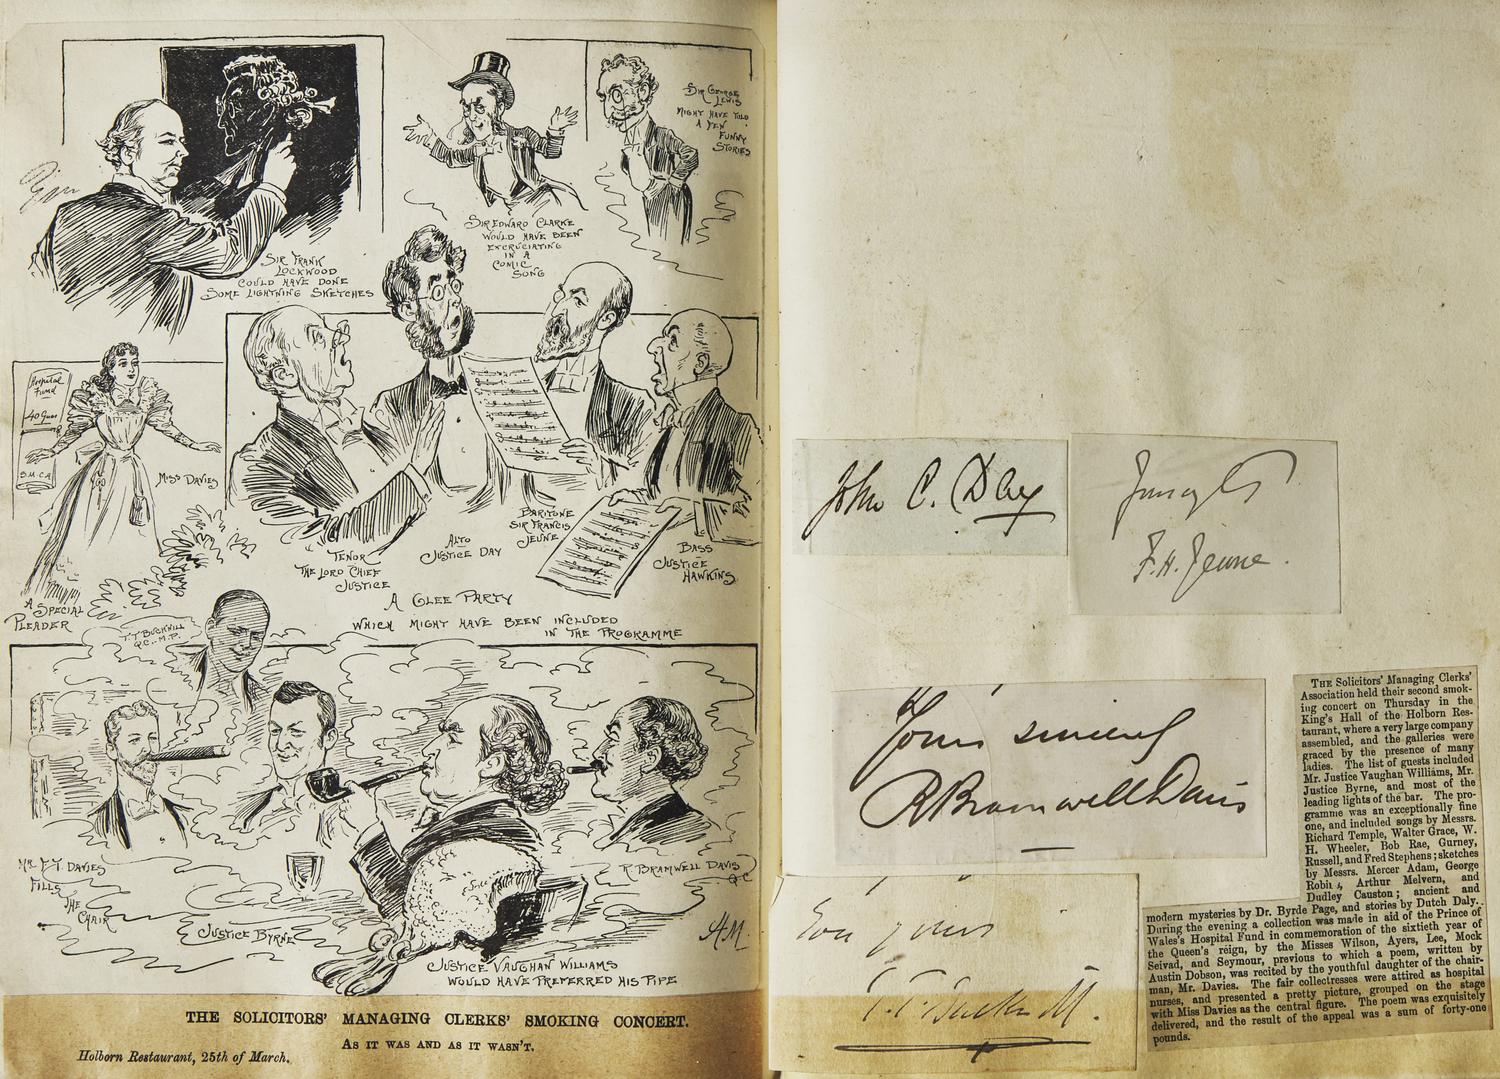 SIR FRANK
LOCKWOOD
COULD HAVE DONE
SOME LIGHTNING SKETCHES
SIR EDWARD CLARKE
WOULD HAVE BEEN
EXCRUCIATING
IN A
COMIC
SONG
SIR GEORGE
LEWIS
MIGHT HAVE TOLD
A FEW
FUNNY
STORIES
Hospital
Fund
40 Guas
S.M.C.A
MISS DAVIES
A SPECIAL
PLEADER
TENOR
THE LORD CHIEF
JUSTICE
ALTO
JUSTICE DAY
BARITONE
SIR FRANCIS
JEUNE
BASS
JUSTICE
HAWKINS
A GLEE PARTY
WHICH MIGHT HAVE BEEN INCLUDED
IN THE PROGRAMME
T.T. BUCKNILL
Q.C. M.P.
MR. F.T. DAVIES
FILLS
THE
CHAIR
JUSTICE BYRNE
R. BRAMWELL DAVIS
QC
JUSTICE VAUGHAN WILLIAMS
WOULD HAVE PREFERRED HIS PIPE
HM
THE SOLICITORS' MANAGING CLERKS' SMOKING CONCERT.
AS IT WAS AND AS IT WASN'T.
Holborn Restaurant, 25th of March.
John C. Day
F.H. Jeune.
Yours sincerely
R Bramwell Davis
yours
T.T. Bucknill.
THE Solicitors' Managing Clerks'
Association held their second smok-
ing concert on Thursday in the
King's Hall of the Holborn Res-
taurant, where a very large company
assembled, and the galleries were
graced by the presence of many
ladies. The list of guests included
Mr. Justice Vaughan Williams, Mr.
Justice Byrne, and most of the
leading lights of the bar. The pro-
gramme was an exceptionally fine
one, and included songs by Messrs.
Richard Temple, Walter Grace, W.
H. Wheeler, Bob Rae, Gurney,
Russell, and Fred Stephens; sketches
by Messrs. Mercer Adam, George
Arthur Melvern, and
Dudley Causton; ancient and
modern mysteries by Dr. Byrde Page, and stories by Dutch Daly.
During the evening a collection was made in aid of the Prince of
Wales's Hospital Fund in commemoration of the sixtieth year of
the Queen's reign, by the Misses Wilson, Ayers, Lee, Mock
Seivad, and Seymour, previous to which a poem, written by
Austin Dobson, was recited by the youthful daughter of the chair-
man, Mr. Davies. The fair collectresses were attired as hospital
nurses, and presented a pretty picture, grouped on the stage
with Miss Davies as the central figure. The poem was exquisitely
delivered, and the result of the appeal was a sum of forty-one
pounds.